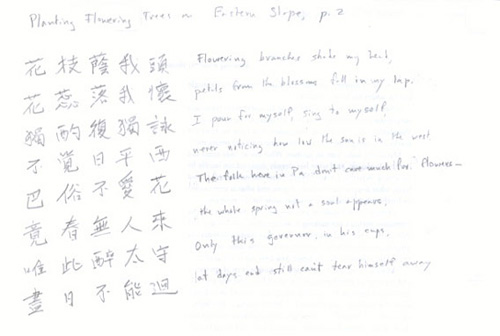 Planting Flowering Trees on Eastern Slope, p. 2
花枝蔭我頭 Flowering branches shade my head,
花蕊落我懷 petals from the blossoms fall in my lap.
獨酌復獨詠 I pour for myself, sing to myself,
不覺日平西 never noticing how low the sun is in the west.
巴俗不愛花 The folk here in Pa don't care much for flowers—
竟春無人來 the whole spring not a soul appears,
唯此醉太守 Only this governor, in his cups,
盡日不能迴 at days end still can't tear himself away